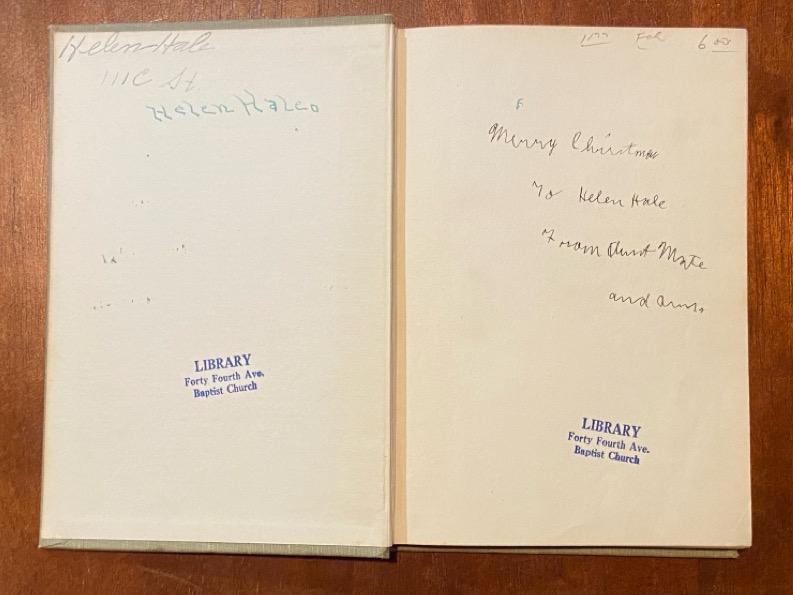 Helen Hale
111 C St
Helen Hale
LIBRARY
Forty Fourth Ave.
Baptist Church
6 00
Merry Christmas
To Helen Hale
From Aunt Mate
and
LIBRARY
Forty Fourth Ave.
Baptist Church